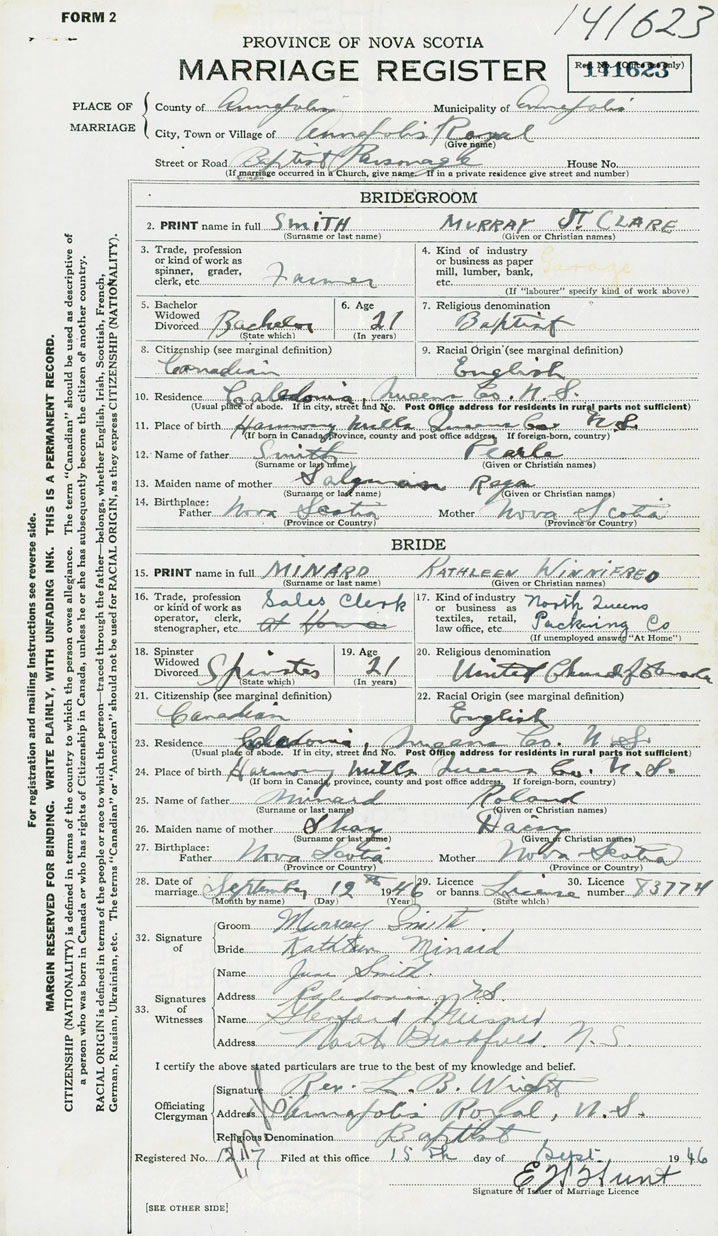 FORM 2
141623
PROVINCE OF NOVA SCOTIA
MARRIAGE REGISTER
Reg. No. (Office use only)
141623
PLACE OF MARRIAGE
County of Annapolis Municipality of Annapolis
City, Town or Village of Annapolis Royal
(Give name)
Street or Road Baptist Parsonage House No.
(If marriage occurred in a Church, give name. If in a private residence give street and number)
BRIDEGROOM
2. PRINT name in full SMITH MURRAY ST CLARE
(Surname or last name) (Given or Christian names)
3. Trade, profession or kind of work as spinner, grader, clerk, etc. Farmer
4. Kind of industry or business as paper mill, lumber, bank, etc. Garage
(If "labourer" specify kind of work above)
5. Bachelor Widowed Divorced Bachelor
(State which)
6. Age 21
(In years)
7. Religious denomination
Baptist
8. Citizenship (see marginal definition)
Canadian
9. Racial Origin (see marginal definition)
English
10. Residence Caledonia, Queens Co. N.S.
(Usual place of abode. If in city, street and No. Post Office address for residents in rural parts not sufficient)
11. Place of birth Harmony Mills Queens Co. N.S.
(If born in Canada, province, county and post office address. If foreign-born, country)
12. Name of father Smith Pearle
(Surname or last name) (Given or Christian names)
13. Maiden name of mother
(Surname or last name) (Given or Christian names)
14. Birthplace:
Father Nova Scotia Mother Nova Scotia
(Province or Country) (Province or Country)
BRIDE
15. PRINT name in full MINARD KATHLEEN WINNIFRED
(Surname or last name) (Given or Christian names)
16. Trade, profession or kind of work as operator, clerk, stenographer, etc. Sales Clerk
At Home
17. Kind of industry or business as textiles, retail, law office, etc. North Queens Packing Co
(If unemployed answer "At Home")
18. Spinster Widowed Divorced Spinster
(State which)
19. Age 21
(In years)
20. Religious denomination
United Church of Canada
21. Citizenship (see marginal definition)
Canadian
22. Racial Origin (see marginal definition)
English
23. Residence Caledonia, Queens Co. N.S.
(Usual place of abode. If in city, street and No. Post Office address for residents in rural parts not sufficient)
24. Place of birth Harmony Mills Queens Co. N.S.
(If born in Canada, province, county and post office address. If foreign-born, country)
25. Name of father Minard Roland
(Surname or last name) (Given or Christian names)
26. Maiden name of mother Shay Daisy
(Surname or last name) (Given or Christian names)
27. Birthplace:
Father Nova Scotia Mother Nova Scotia
(Province or Country) (Province or Country)
28. Date of marriage September 12th 1946
(Month by name) (Day) (Year)
29. Licence or banns License
(State which)
30. Licence number 83774
32. Signature of
Groom Murray Smith
Bride Kathleen Minard
33. Signatures of Witnesses
Name June Smith
Address Caledonia, N.S.
Name
Address North Brookfield, N.S.
I certify the above stated particulars are true to the best of my knowledge and belief.
Officiating Clergyman
Signature Rev. L. B. Wright
Address Annapolis Royal, N.S.
Religious Denomination Baptist
Registered No. 127 Filed at this office 15th day of Sept. 1946
Signature of Issuer of Marriage Licence
[SEE OTHER SIDE]
For registration and mailing instructions see reverse side.
MARGIN RESERVED FOR BINDING. WRITE PLAINLY, WITH UNFADING INK. THIS IS A PERMANENT RECORD.
CITIZENSHIP (NATIONALITY) is defined in terms of the country to which the person owes allegiance. The term "Canadian" should be used as descriptive of
a person who was born in Canada or who has rights of Citizenship in Canada, unless he or she has subsequently become the citizen of another country.
RACIAL ORIGIN is defined in terms of the people or race to which the person—traced through the father—belongs, whether English, Irish, Scottish, French,
German, Russian, Ukrainian, etc. The terms "Canadian" or "American" should not be used for RACIAL ORIGIN, as they express CITIZENSHIP (NATIONALITY).